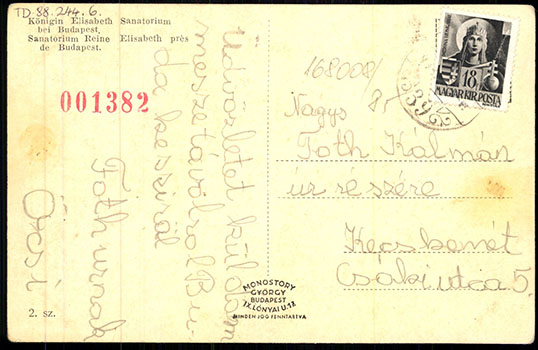 TD.88.244.6.
Königin Elisabeth Sanatorium
bei Budapest.
Sanatorium Reine Elisabeth près
de Budapest.
001382
Üdvözletet küldöm
messzetávolrol Bu-
da keszirol
Tóth urnak
Öcsi
2. sz.
MONOSTORY
GYÖRGY
BUDAPEST
IX. LÓNYAI U. 18
MINDEN JOG FENNTARTVA
168008/
18
MAGYAR KIR. POSTA
Nagys
Tóth Kálmán
úr részére
Kecskemét
Csáki utca 5.